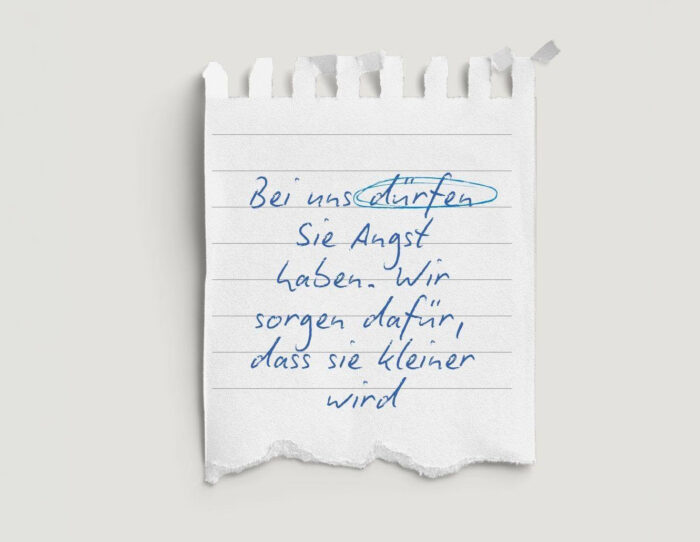 Bei uns dürfen
Sie Angst
haben. Wir
sorgen dafür,
dass sie kleiner
wird